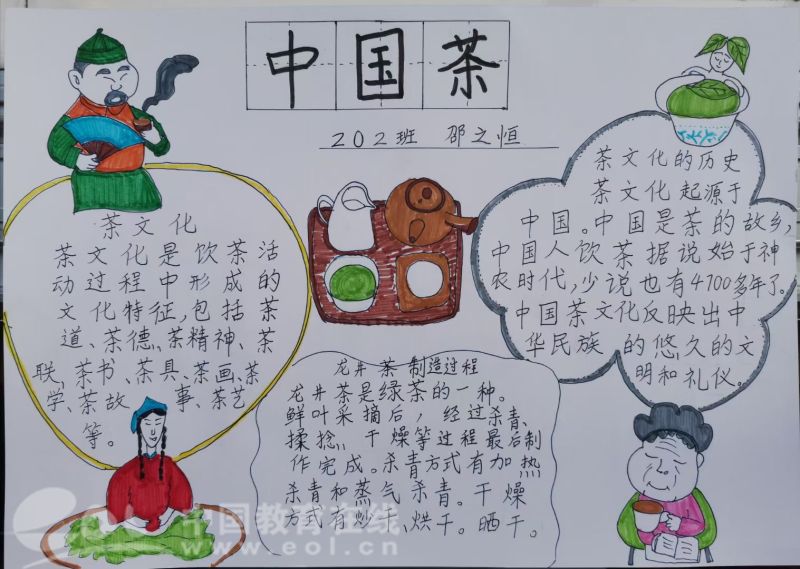 中国茶
202班 邵之恒
茶文化
茶文化是饮茶活
动过程中形成的
文化特征,包括茶
道、茶德、茶精神、茶
联、茶书、茶具、茶画、茶
学、茶故事、茶艺
等。
茶文化的历史
茶文化起源于
中国。中国是茶的故乡,
中国人饮茶据说始于神
农时代,少说也有4700多年了。
中国茶文化反映出中
华民族的悠久的文
明和礼仪。
龙井茶制造过程
龙井茶是绿茶的一种。
鲜叶采摘后,经过杀青、
揉捻、干燥等过程最后制
作完成。杀青方式有加热
杀青和蒸气杀青。干燥
方式有炒干、烘干。晒干。
中国教育在线
www.eol.cn